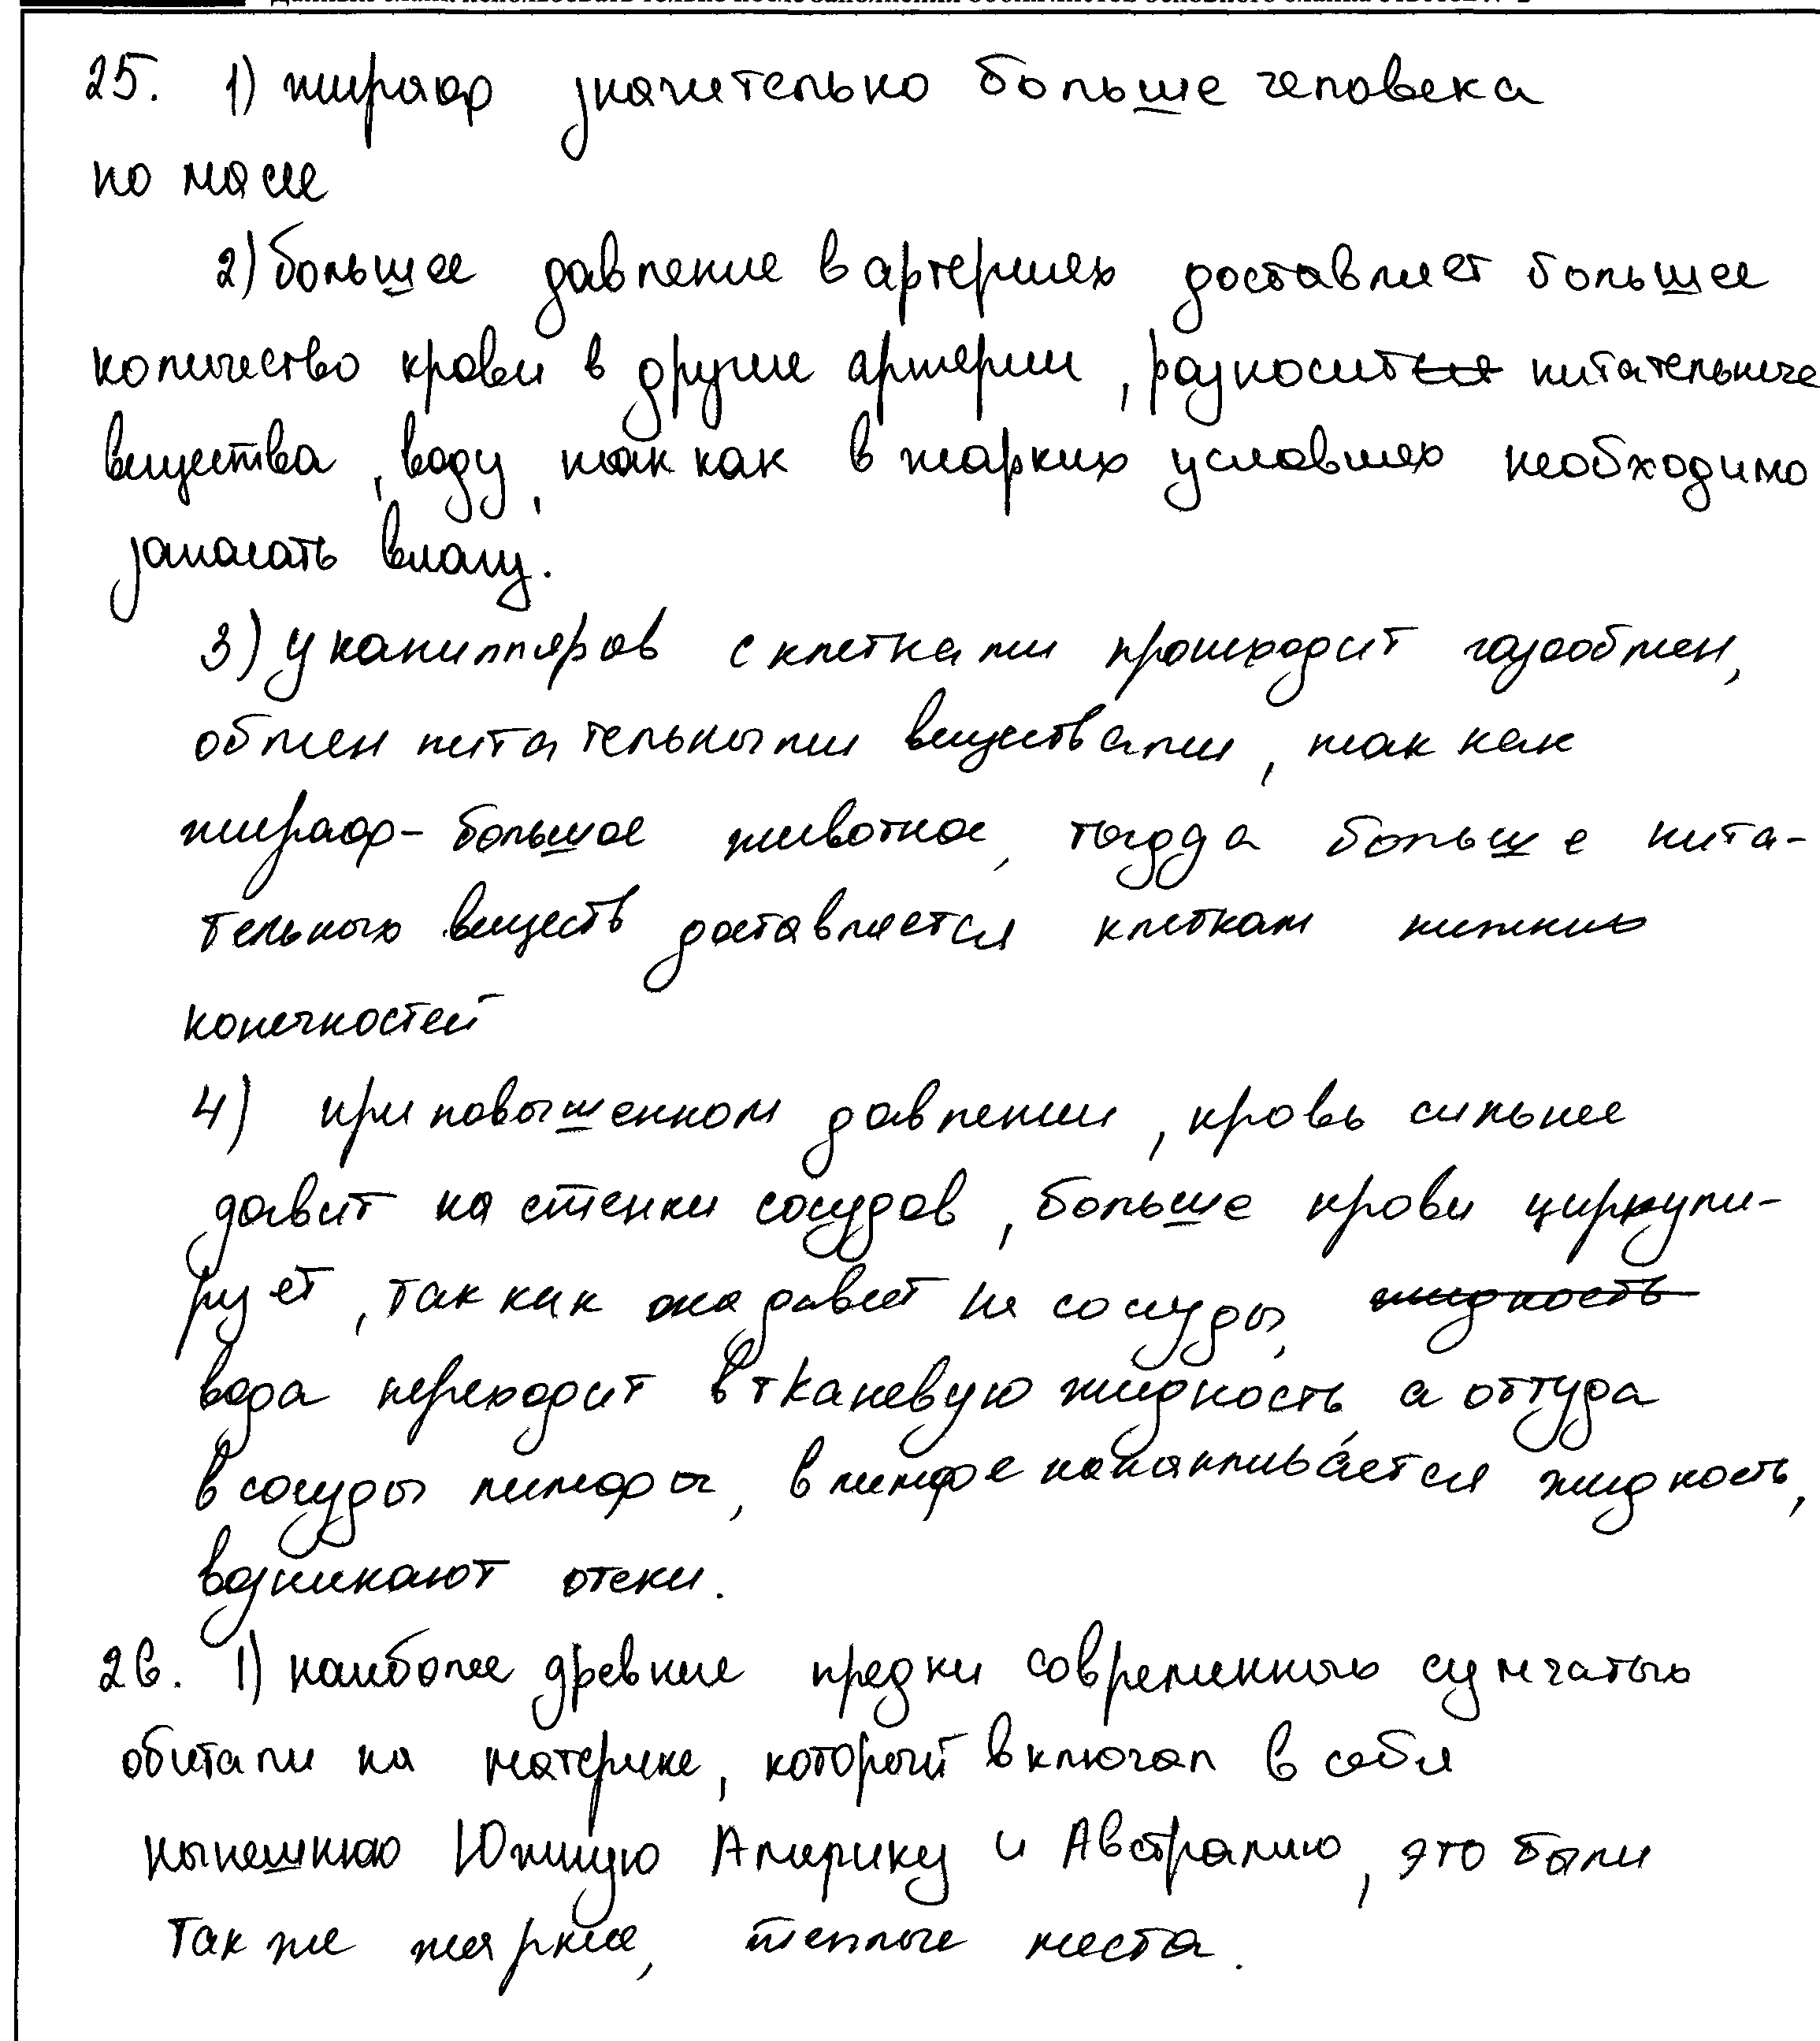 25. 1) жираф значительно больше человека
по массе
2) большее давление в артериях доставляет большее
количество крови в другие артерии, разносит питательные
вещества, воду, так как в жарких условиях необходимо
запасать влагу.
3) у капилляров с клетками происходит газообмен,
обмен питательными веществами, так как
жираф - большое животное, тогда больше пита-
тельных веществ доставляется клеткам нижних
конечностей
4) при повышенном давлении, кровь сильнее
давит на стенки сосудов, больше крови циркули-
рует, так как она давит на сосуды,
вода переходит в тканевую жидкость, а оттуда
в сосуды лимфы, в лимфе накапливается жидкость,
возникают отеки.
26. 1) наиболее древние предки современных сумчатых
обитали на материке, который включал в себя
нынешнюю Южную Америку и Австралию, это были
так же жаркие, теплые места.